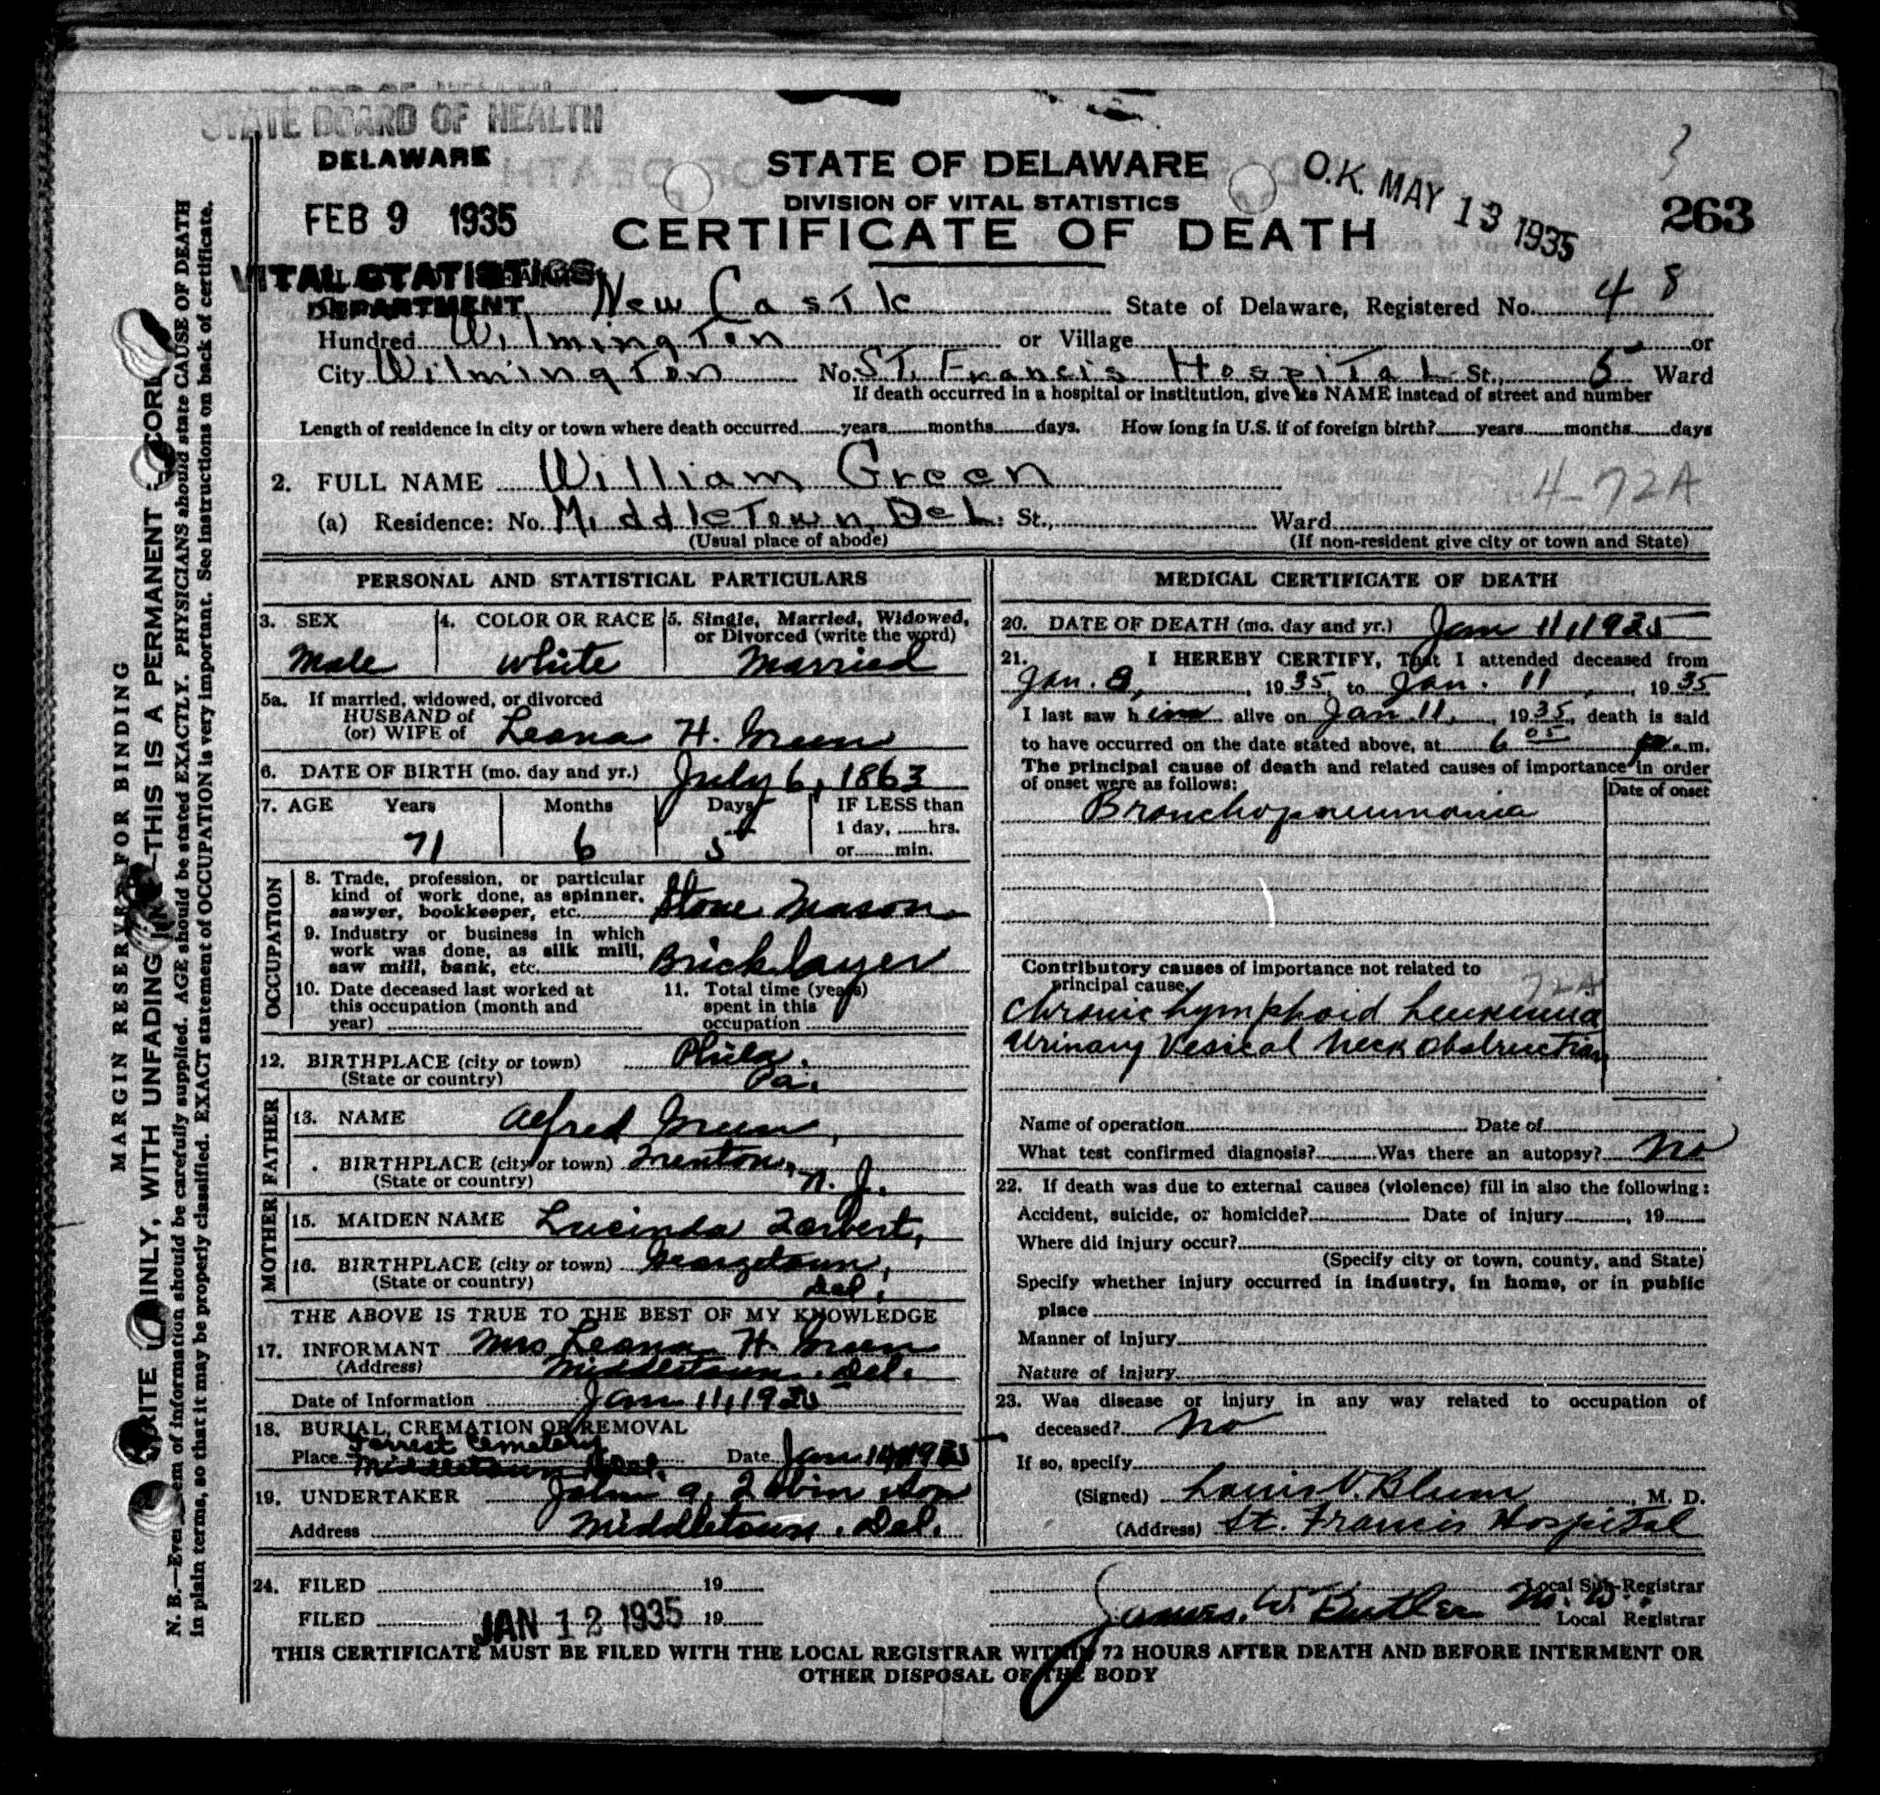 STATE BOARD OF HEALTH
DELAWARE
FEB 9 1935
VITAL STATISTICS
DEPARTMENT
STATE OF DELAWARE
DIVISION OF VITAL STATISTICS
CERTIFICATE OF DEATH
O.K. MAY 13 1935
263
New Castle State of Delaware, Registered No. 48
Hundred Wilmington or Village or
City Wilmington No. St. Francis Hospital St., 5 Ward
If death occurred in a hospital or institution, give its NAME instead of street and number
Length of residence in city or town where death occurred years months days. How long in U.S. if of foreign birth? years months days
2. FULL NAME William Green
4-72A
(a) Residence: No. Middletown, Del. St., Ward
(Usual place of abode) (If non-resident give city or town and State)
PERSONAL AND STATISTICAL PARTICULARS
3. SEX 4. COLOR OR RACE 5. Single, Married, Widowed,
or Divorced (write the word)
Male White Married
5a. If married, widowed, or divorced
HUSBAND of
(or) WIFE of Leona H. Green
6. DATE OF BIRTH (mo. day and yr.) July 6, 1863
7. AGE Years Months Days IF LESS than
1 day, hrs.
71 6 5 or min.
OCCUPATION
8. Trade, profession, or particular
kind of work done, as spinner,
sawyer, bookkeeper, etc. Stone Mason
9. Industry or business in which
work was done, as silk mill,
saw mill, bank, etc. Bricklayer
10. Date deceased last worked at
this occupation (month and
year)
11. Total time (years)
spent in this
occupation
12. BIRTHPLACE (city or town) Phila.
(State or country) Pa.
FATHER
13. NAME Alfred Green,
. BIRTHPLACE (city or town) Trenton,
(State or country) N. J.
MOTHER
15. MAIDEN NAME Lucinda
16. BIRTHPLACE (city or town) Georgetown,
(State or country) Del.
THE ABOVE IS TRUE TO THE BEST OF MY KNOWLEDGE
17. INFORMANT Mrs Leona H. Green
(Address) Middletown, Del.
Date of Information Jan 11, 1935
18. BURIAL, CREMATION OR REMOVAL
Forrest Cemetery
Place Middletown Del. Date Jan 1935
19. UNDERTAKER John A. Son
Address Middletown, Del.
MEDICAL CERTIFICATE OF DEATH
20. DATE OF DEATH (mo. day and yr.) Jan 11, 1935
21. I HEREBY CERTIFY, That I attended deceased from
Jan. 8, 1935, to Jan. 11, 1935
I last saw him alive on Jan. 11, 1935, death is said
to have occurred on the date stated above, at 6 05 m.
The principal cause of death and related causes of importance in order
of onset were as follows: Date of onset
Bronchopneumonia
Contributory causes of importance not related to
principal cause. 72A
Chronic Lymphoid Leukemia
Urinary Vesical Neck Obstruction
Name of operation Date of
What test confirmed diagnosis? Was there an autopsy? No
22. If death was due to external causes (violence) fill in also the following:
Accident, suicide, or homicide? Date of injury , 19
Where did injury occur?
(Specify city or town, county, and State)
Specify whether injury occurred in industry, in home, or in public
place
Manner of injury
Nature of injury
23. Was disease or injury in any way related to occupation of
deceased? No
If so, specify
(Signed) Louis V. Blum, M. D.
(Address) St. Francis Hospital
24. FILED 19 Local Sub-Registrar
FILED JAN 12 1935 19 James W. Butler M. D. Local Registrar
THIS CERTIFICATE MUST BE FILED WITH THE LOCAL REGISTRAR WITHIN 72 HOURS AFTER DEATH AND BEFORE INTERMENT OR
OTHER DISPOSAL OF THE BODY
MARGIN RESERVED FOR BINDING
WRITE PLAINLY, WITH UNFADING INK—THIS IS A PERMANENT RECORD
N. B.—Every item of information should be carefully supplied. AGE should be stated EXACTLY. PHYSICIANS should state CAUSE OF DEATH
in plain terms, so that it may be properly classified. EXACT statement of OCCUPATION is very important. See instructions on back of certificate.